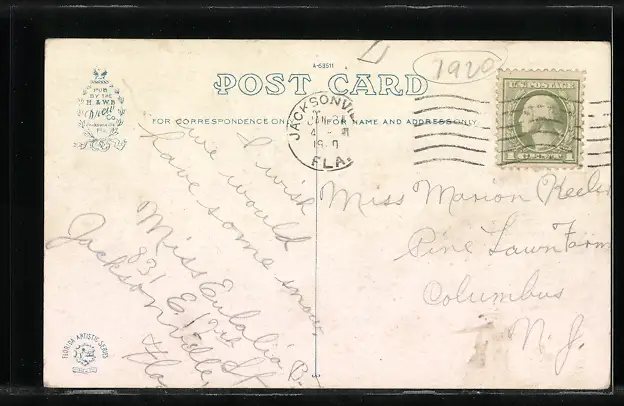 A-63511
1920
POST CARD
PUB
BY THE
H. & W.B.
DREW
CO.
JACKSONVILLE
FLA.
FOR CORRESPONDENCE ONLY FOR NAME AND ADDRESS ONLY.
JACKSONVI
JAN
19
FLA.
U.S. POSTAGE
1 CENT 1
I wish
we would
have some snow,
Miss Eulalia B.
831 E
Jacksonville
Fla
Miss Marion Keeler
Pine Lawn Farm
Columbus
N. J.
FLORIDA ARTISTIC SERIES